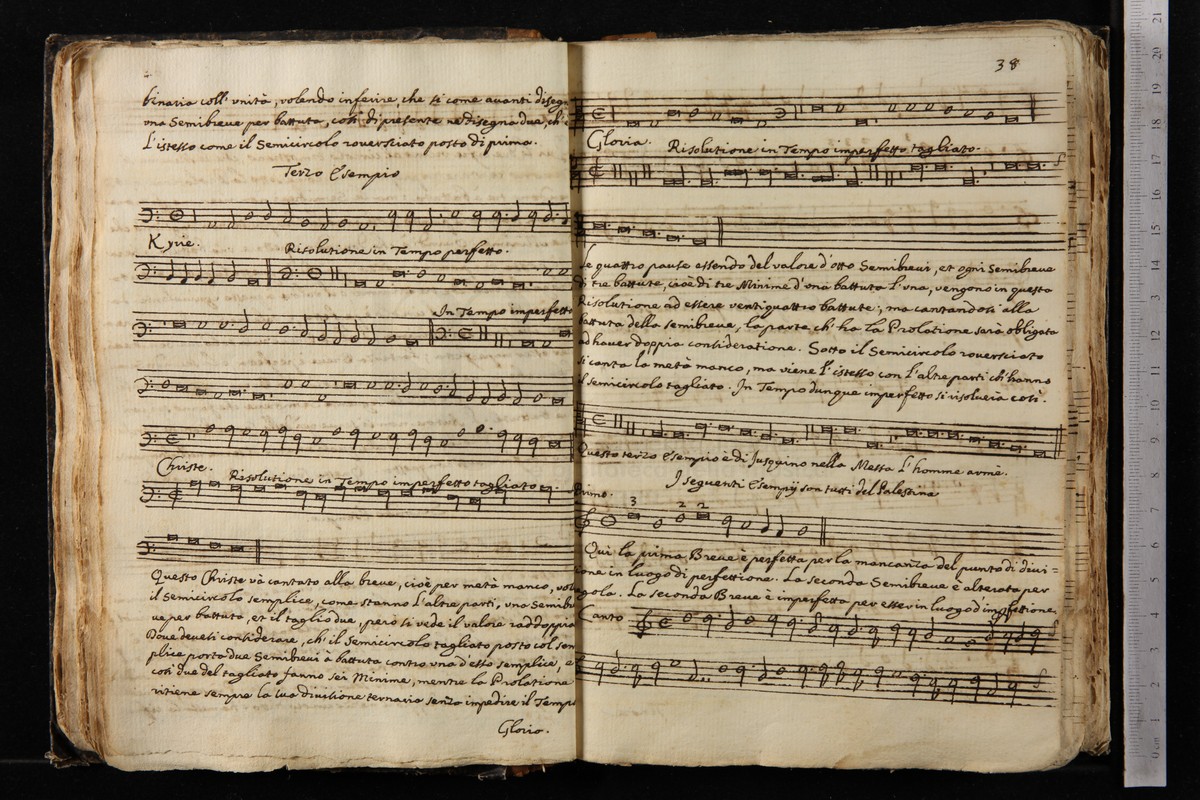 binaria coll' unità, volendo inferire, che si come avanti disegn
una Semibreve per battuta, così di presente ne disegna due, ch'è
L'istesso come il Semicircolo roversciato posto di prima.
Terzo Esempio
Kyrie.
Risolutione in Tempo perfetto.
In Tempo imperfetto
Christe.
Risolutione in Tempo imperfetto tagliato.
Questo Christe và cantato alla breve, cioè per metà manco,
il Semicircolo semplice, come stanno L'altre parti, una Semibr
ve per battuta, et il taglio due, però si vede il valore raddoppia
Dove deveti considerare, ch'il Semicircolo tagliato posto col sem
plice porta due Semibrevi à battuta contro una d'esso semplice, e
così due del tagliato fanno sei Minime, mentre la Prolatione
ritiene sempre la sua divisione ternaria senza impedire il Temp
Gloria.
38
Gloria.
Risolutione in Tempo imperfetto tagliato.
Le quattro pause essendo del valore d'otto Semibrevi, et ogni Semibreve
di tre battute, cioè di tre Minime d'una battuta l'una, vengono in questa
Risolutione ad essere ventiquattro battute; ma cantandosi alla
battuta della semibreve, la parte ch'ha la Prolatione sarà obligata
ad haver doppia consideratione. Sotto il Semicircolo roversciato
si canta la metà manco, ma viene l'istesso con l'altre parti ch'hanno
il semicircolo tagliato. In Tempo dunque imperfetto si risolveria così.
Questo terzo Esempio è di Jusquino nella Messa L'homme armè.
I seguenti Esempij son tutti del Palestina
Primo.
3
2 2
Qui la prima Breve è perfetta per la mancanza del punto di divi=
ione in luogo di perfettione. La seconda Semibreve è alterata per
gola. La seconda Breve è imperfetta per esser in luogo d'imperfettione.
Canto